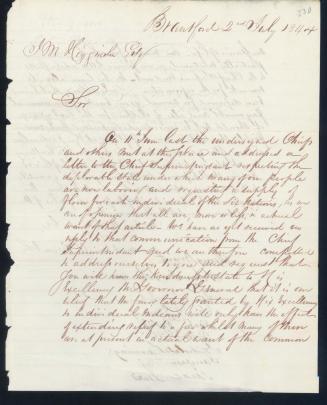 330
Brantford 2nd July 1844
J M Higginson Esqr
Sir
On 11th June last the undersigned Chiefs
and others met at this place and addressed a
letter to the Chief Superintendent respecting the
deplorable state under which many of our people
are now laboring and requested a supply of
flour for each individual of the Six Nations, in
of
want of that article. We have as yet received no
reply to that communication from the Chief
Superintendent and we are therefore compelled
to address
You will have the kindness to state to His
Excellency the Governor General that it is our
belief that the
to individual Indians will only have the effect
of extending relief to a few whilst many of them
are at present in actual want of the common